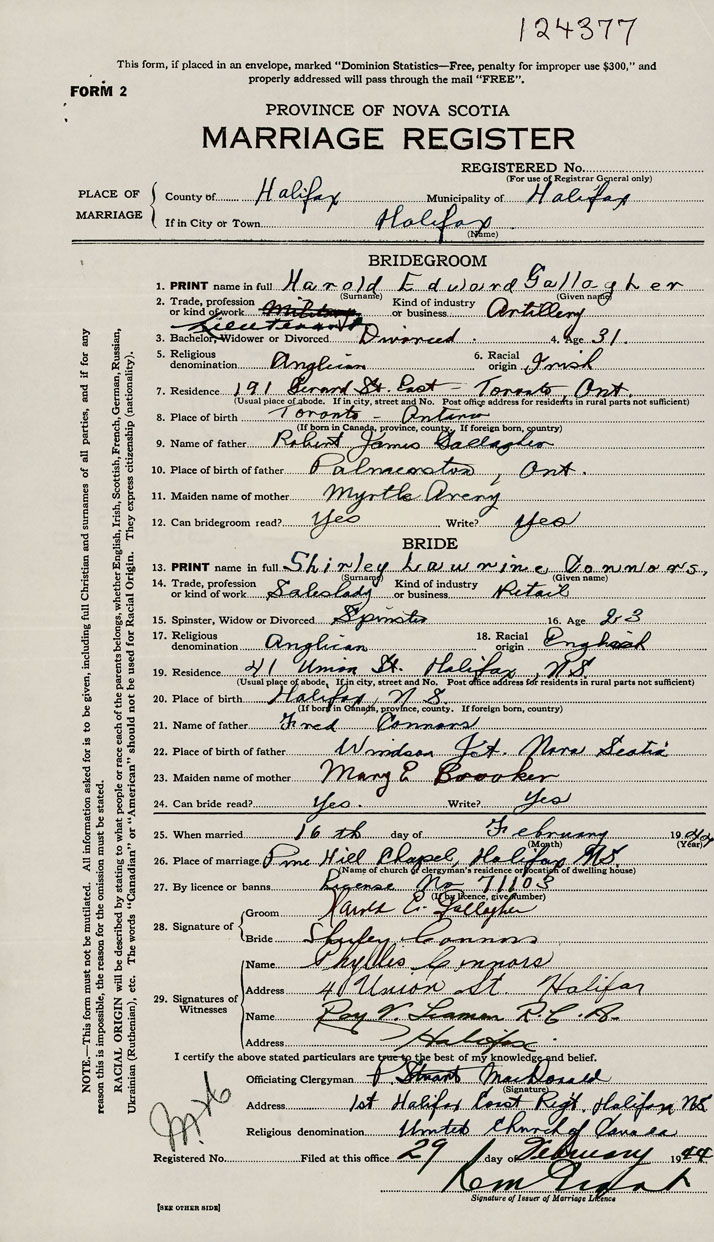 124377
This form, if placed in an envelope, marked "Dominion Statistics—Free, penalty for improper use $300," and
properly addressed will pass through the mail "FREE".
FORM 2
PROVINCE OF NOVA SCOTIA
MARRIAGE REGISTER
REGISTERED No.
(For use of Registrar General only)
PLACE OF MARRIAGE
County of Halifax Municipality of Halifax
If in City or Town Halifax
(Name)
BRIDEGROOM
1. PRINT name in full Harold Edward Gallagher
(Surname) (Given name)
2. Trade, profession or kind of work Military Kind of industry or business Artillery
Lieutenant
3. Bachelor, Widower or Divorced Divorced. 4. Age 31.
5. Religious denomination Anglican 6. Racial origin Irish
7. Residence 191 Gerard St. East - Toronto, Ont.
(Usual place of abode. If in city, street and No. Post office address for residents in rural parts not sufficient)
8. Place of birth Toronto - Ontario
(If born in Canada, province, county. If foreign born, country)
9. Name of father Robert James Gallagher
10. Place of birth of father Palmerston, Ont.
11. Maiden name of mother Myrtle Avery
12. Can bridegroom read? Yes Write? Yes
BRIDE
13. PRINT name in full Shirley Lawrine Connors,
(Surname) (Given name)
14. Trade, profession or kind of work Saleslady Kind of industry or business Retail
15. Spinster, Widow or Divorced Spinster 16. Age 23
17. Religious denomination Anglican 18. Racial origin English
19. Residence 41 Union St. Halifax, N.S.
(Usual place of abode. If in city, street and No. Post office address for residents in rural parts not sufficient)
20. Place of birth Halifax, N.S.
(If born in Canada, province, county. If foreign born, country)
21. Name of father Fred Connors
22. Place of birth of father Windsor Jct. Nova Scotia
23. Maiden name of mother Mary E Boooker
24. Can bride read? Yes. Write? Yes
25. When married 16th day of February 1944
(Month) (Year)
26. Place of marriage Pine Hill Chapel, Halifax N.S.
(Name of church or clergyman's residence or location of dwelling house)
27. By licence or banns License No 71103
(If by licence, give number)
28. Signature of
Groom Harold E. Gallagher
Bride Shirley Connors
29. Signatures of Witnesses
Name Phyllis Connors
Address 41 Union St. Halifax
Name Roy V. Seaman R.C.A.
Address Halifax.
I certify the above stated particulars are true to the best of my knowledge and belief.
Officiating Clergyman P. Stuart MacDonald
(Signature)
Address 1st Halifax Coast Regt. Halifax NS
Religious denomination United Church of Canada
Registered No. Filed at this office 29 day of February 1944
Signature of Issuer of Marriage Licence
[SEE OTHER SIDE]
NOTE.—This form must not be mutilated. All information asked for is to be given, including full Christian and surnames of all parties, and if for any
reason this is impossible, the reason for the omission must be stated.
RACIAL ORIGIN will be described by stating to what people or race each of the parents belongs, whether English, Irish, Scottish, French, German, Russian,
Ukrainian (Ruthenian), etc. The words "Canadian" or "American" should not be used for Racial Origin. They express citizenship (nationality).